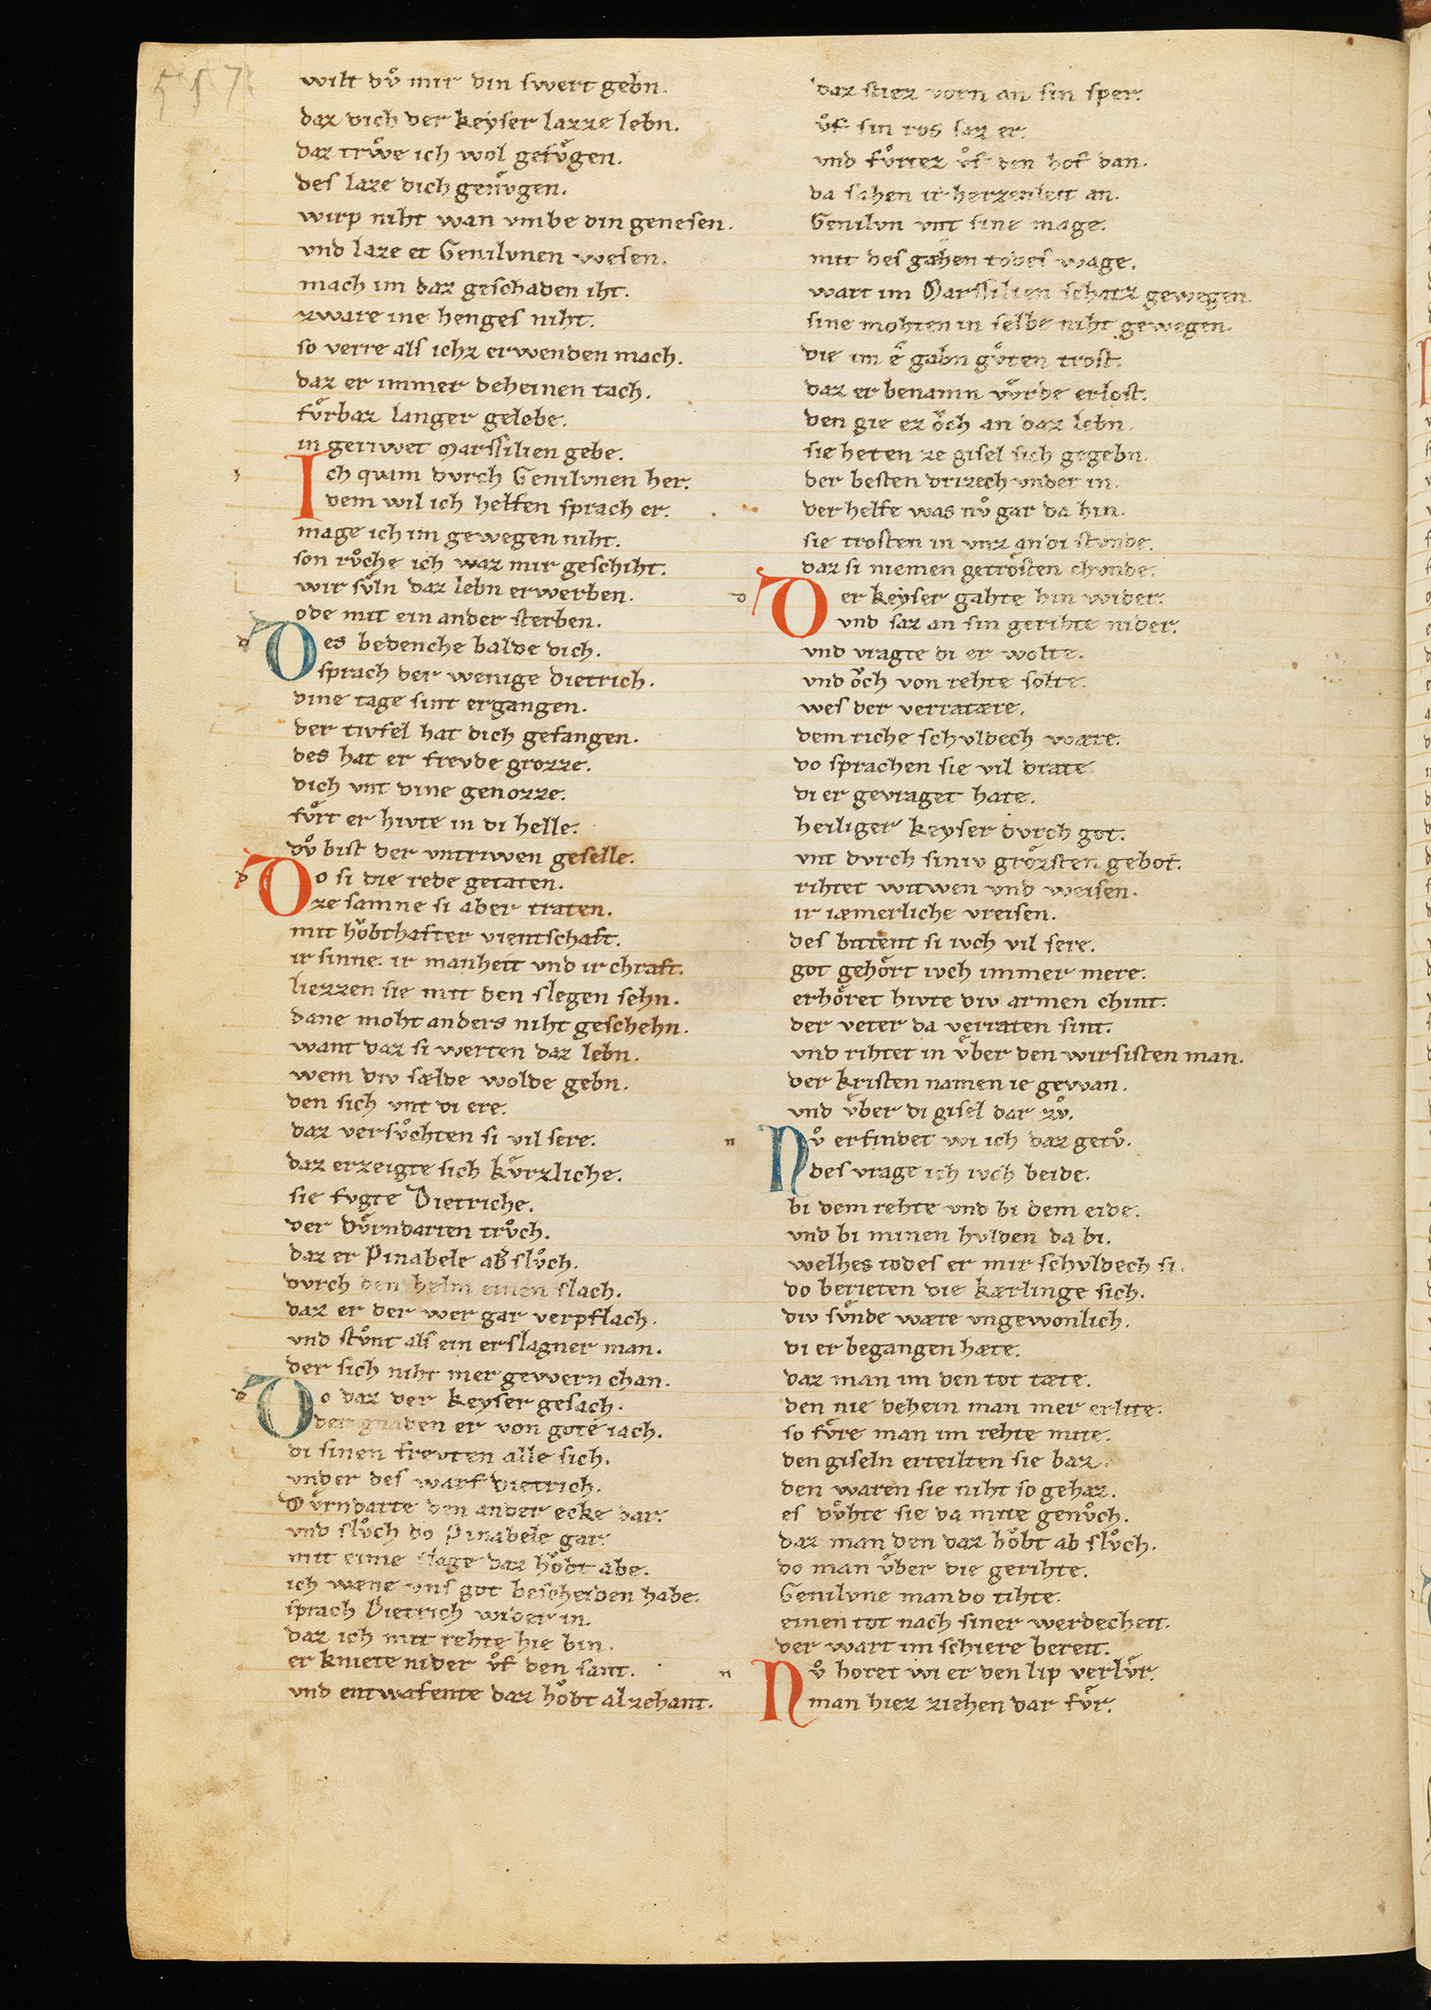 557
wilt dv̊ mir din swert gebn.
daz dich der keyser lazze lebn.
daz trv̊we ich wol gefv̊gen.
des laze dich genv̊gen.
wirp niht wan vmbe din genesen.
vnd laze et Genilvnen wesen.
mach im daz geschaden iht.
zware ine henges niht.
so verre als ichz erwenden mach.
daz er immer deheinen tach.
fv̊rbaz langer gelebe.
in geriwet Marssilien gebe.
Ich quam dvrch Genilvnen her.
dem wil ich helfen sprach er.
mage ich im gewegen niht.
son rv̊che ich waz mir geschiht.
wir sv̊ln daz lebn erwerben.
ode mit ein ander sterben.
Des bedenche balde dich.
sprach der wenige Dietrich.
dine tage sint ergangen.
der tivfel hat dich gefangen.
des hat er frevde grozze.
dich vnt dine genozze.
fv̊rt er hivte in di helle.
dv̊ bist der vntriwen geselle.
Do si die rede getaten.
ze samne si aber traten.
mit hŏbthafter vientschaft.
ir sinne. ir manheit vnd ir chraft.
liezzen sie mit den slegen sehn.
dane moht anders niht geschehn.
want daz si werten daz lebn.
wem div sælde wolde gebn.
den sich vnt di ere.
daz versv̊chten si vil sere.
daz erzeigte sich kv̊rzliche.
sie fvgte Dietriche.
der Dv̊rndarten trv̊ch.
daz er Pinabele ab slv̊ch.
dvrch den helm einen slach.
daz er der wer gar verpflach.
vnd stv̊nt als ein erslagner man.
der sich niht mer gewern chan.
Do daz der keyser gesach.
der gnaden er von gote iach.
di sinen frevten alle sich.
vnder des warf Dietrich.
Dv̊rndarte den ander ecke dar.
vnd slv̊ch do Pinabele gar.
mit eime slage daz hŏbt abe.
ich wæne vns got bescheiden habe.
sprach Dietrich wider in.
daz ich mit rehte hie bin.
er kniete nider v̊f den sant.
vnd entwafente daz hŏbt alzehant.
daz stiez vorn an sin sper.
v̊f sin ros saz er.
vnd fv̊rtez v̊f den hof dan.
da sahen ir herzenleit an.
Genilvn vnt sine mage.
mit des gæhen todes wage.
wart im Marssilien schatz gewegen.
sine mohten in selbe niht gewegen.
die im ê gabn gv̊ten trost.
daz er benamn wv̊rde erlost.
den gie ez ŏch an daz lebn.
sie heten ze gisel sich gegebn.
der besten drizech vnder in.
der helfe was nv̊ gar da hin.
sie trosten in vnz an di stvnde.
daz si niemen getrŏsten chvnde.
Der keyser gahte hin wider.
vnd saz an sin gerihte nider.
vnd vragte di er wolte.
vnd ŏch von rehte solte.
wes der verratære.
dem riche schvldech wære.
do sprachen sie vil drate
di er gevraget hate.
heiliger keyser dvrch got.
vnt dvrch siniv grŏzsten gebot.
rihtet witwen vnd weisen.
ir iæmerliche vreisen.
des bittent si ivch vil sere.
got gehŏrt ivch immer mere.
erhŏret hivte div armen chint.
der veter da verraten sint.
vnd rihtet in v̊ber den wirsisten man.
der kristen namen ie gewan.
vnd v̊ber di gisel dar zv̊.
Nv̊ erfindet wi ich daz getv̊.
des vrage ich ivch beide.
bi dem rehte vnd bi dem eide.
vnd bi minen hvlden da bi.
welhes todes er mir schvldech si.
do berieten die kærlinge sich.
div sv̊nde wære vngewonlich.
di er begangen hæte.
daz man im den tot tæte.
den nie dehein man mer erlite.
so fv̊re man im rehte mite.
den giseln erteilten sie baz.
den waren sie niht so gehaz.
es dv̊hte sie da mite genv̊ch.
daz man den daz hŏbt ab slv̊ch.
do man v̊ber die gerihte.
Genilvne man do tihte.
einen tot nach siner werdecheit.
der wart im schiere bereit.
Nv̊ horet wi er den lip verlv̊r.
man hiez ziehen dar fv̊r.